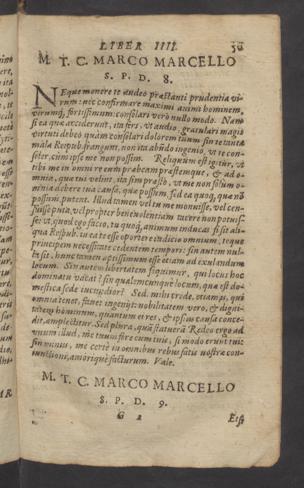 LIBER IIII.
M. T. C. MARCO MARCELLO
S. P. D. 8.
NEque monere te audeo præstanti prudentia vi-
rum: nec confirmare maximi animi hominem,
virumq; fortissimum: consolari verò nullo modo. Nam
si ea quæ acciderunt, ita fers, vt audio, gratulari magis
virtuti debeo quàm consolari dolorem tuum: sin te tanta
mala Reipub. frangunt, non ita abũdo ingenio, vt te con-
soler, cum ipse me non possim. Reliquum est igitur, vt
tibi me in omni re eum præbeam præstemque, & ad o-
mnia, quæ tui velint, ita sim præsto, vt me non solùm o-
mnia debere tua causa, quæ possim, sed ea quoq; quæ nõ
possim, putent. Illud tamen vel tu me monuisse, vel cen-
suisse puta, vel propter beneuolentiam tacere non potuis-
se: vt, quod ego facio, tu quoq; animum inducas si sit ali-
qua Respub. in ea te esse oportere
principem necessitate cedentem tempori: sin autem nul-
la sit, hunc tamen aptissimum esse etiam ad exulandum
locum. Sin autem libertatem sequimur, qui locus hoc
dominatu vacat? sin qualemcunque locum, quæ est do-
mestica sede iucundior? Sed mihi crede, etiam is, qui
omnia tenet, fauet ingeniis: nobilitatem vero, & dignita-
tem hominum, quantum ei res, & ipsius causa conce-
dit, amplectitur. Sed plura, quã statuerã. Redeo ergo ad
vnum illud, me tuum fore cum tuis, si modo erunt tui:
sin minus, me certè in omnibus rebus satis nostræ con-
iunctioni, amoriq; facturum. Vale.
M. T. C. MARCO MARCELLO
S. P. D. 9.
G 2
Etsi